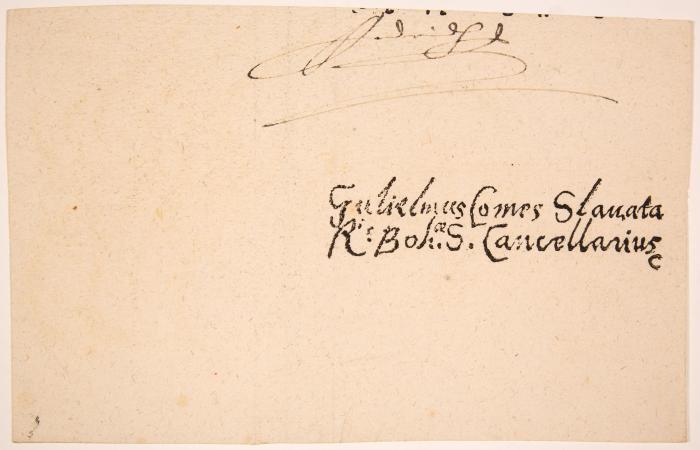 Gulielmus Comes Slavata
R.is Boh.æ S. Cancellarius